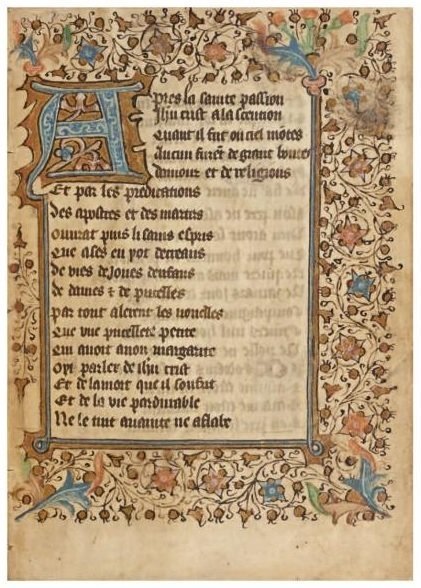 Apres la sainte passion
Ihu crist a la scention
Quant il fut ou ciel motes
Aucun furēt de grant bontes
damour et de religions
Et par les predications
des apostres et des martirs
ouurat puis li sains espirs
Que ases en yot
de vies de Joues denfans
de dames & de pucelles
par tout alerent les nouelles
Que vne pucellete petite
Qui auoit anon margarite
Oyt parler de ihu crist
Et de la mort que il soufrit
Et de la vie pardurable
Ne le tint a vanite ne a flabe